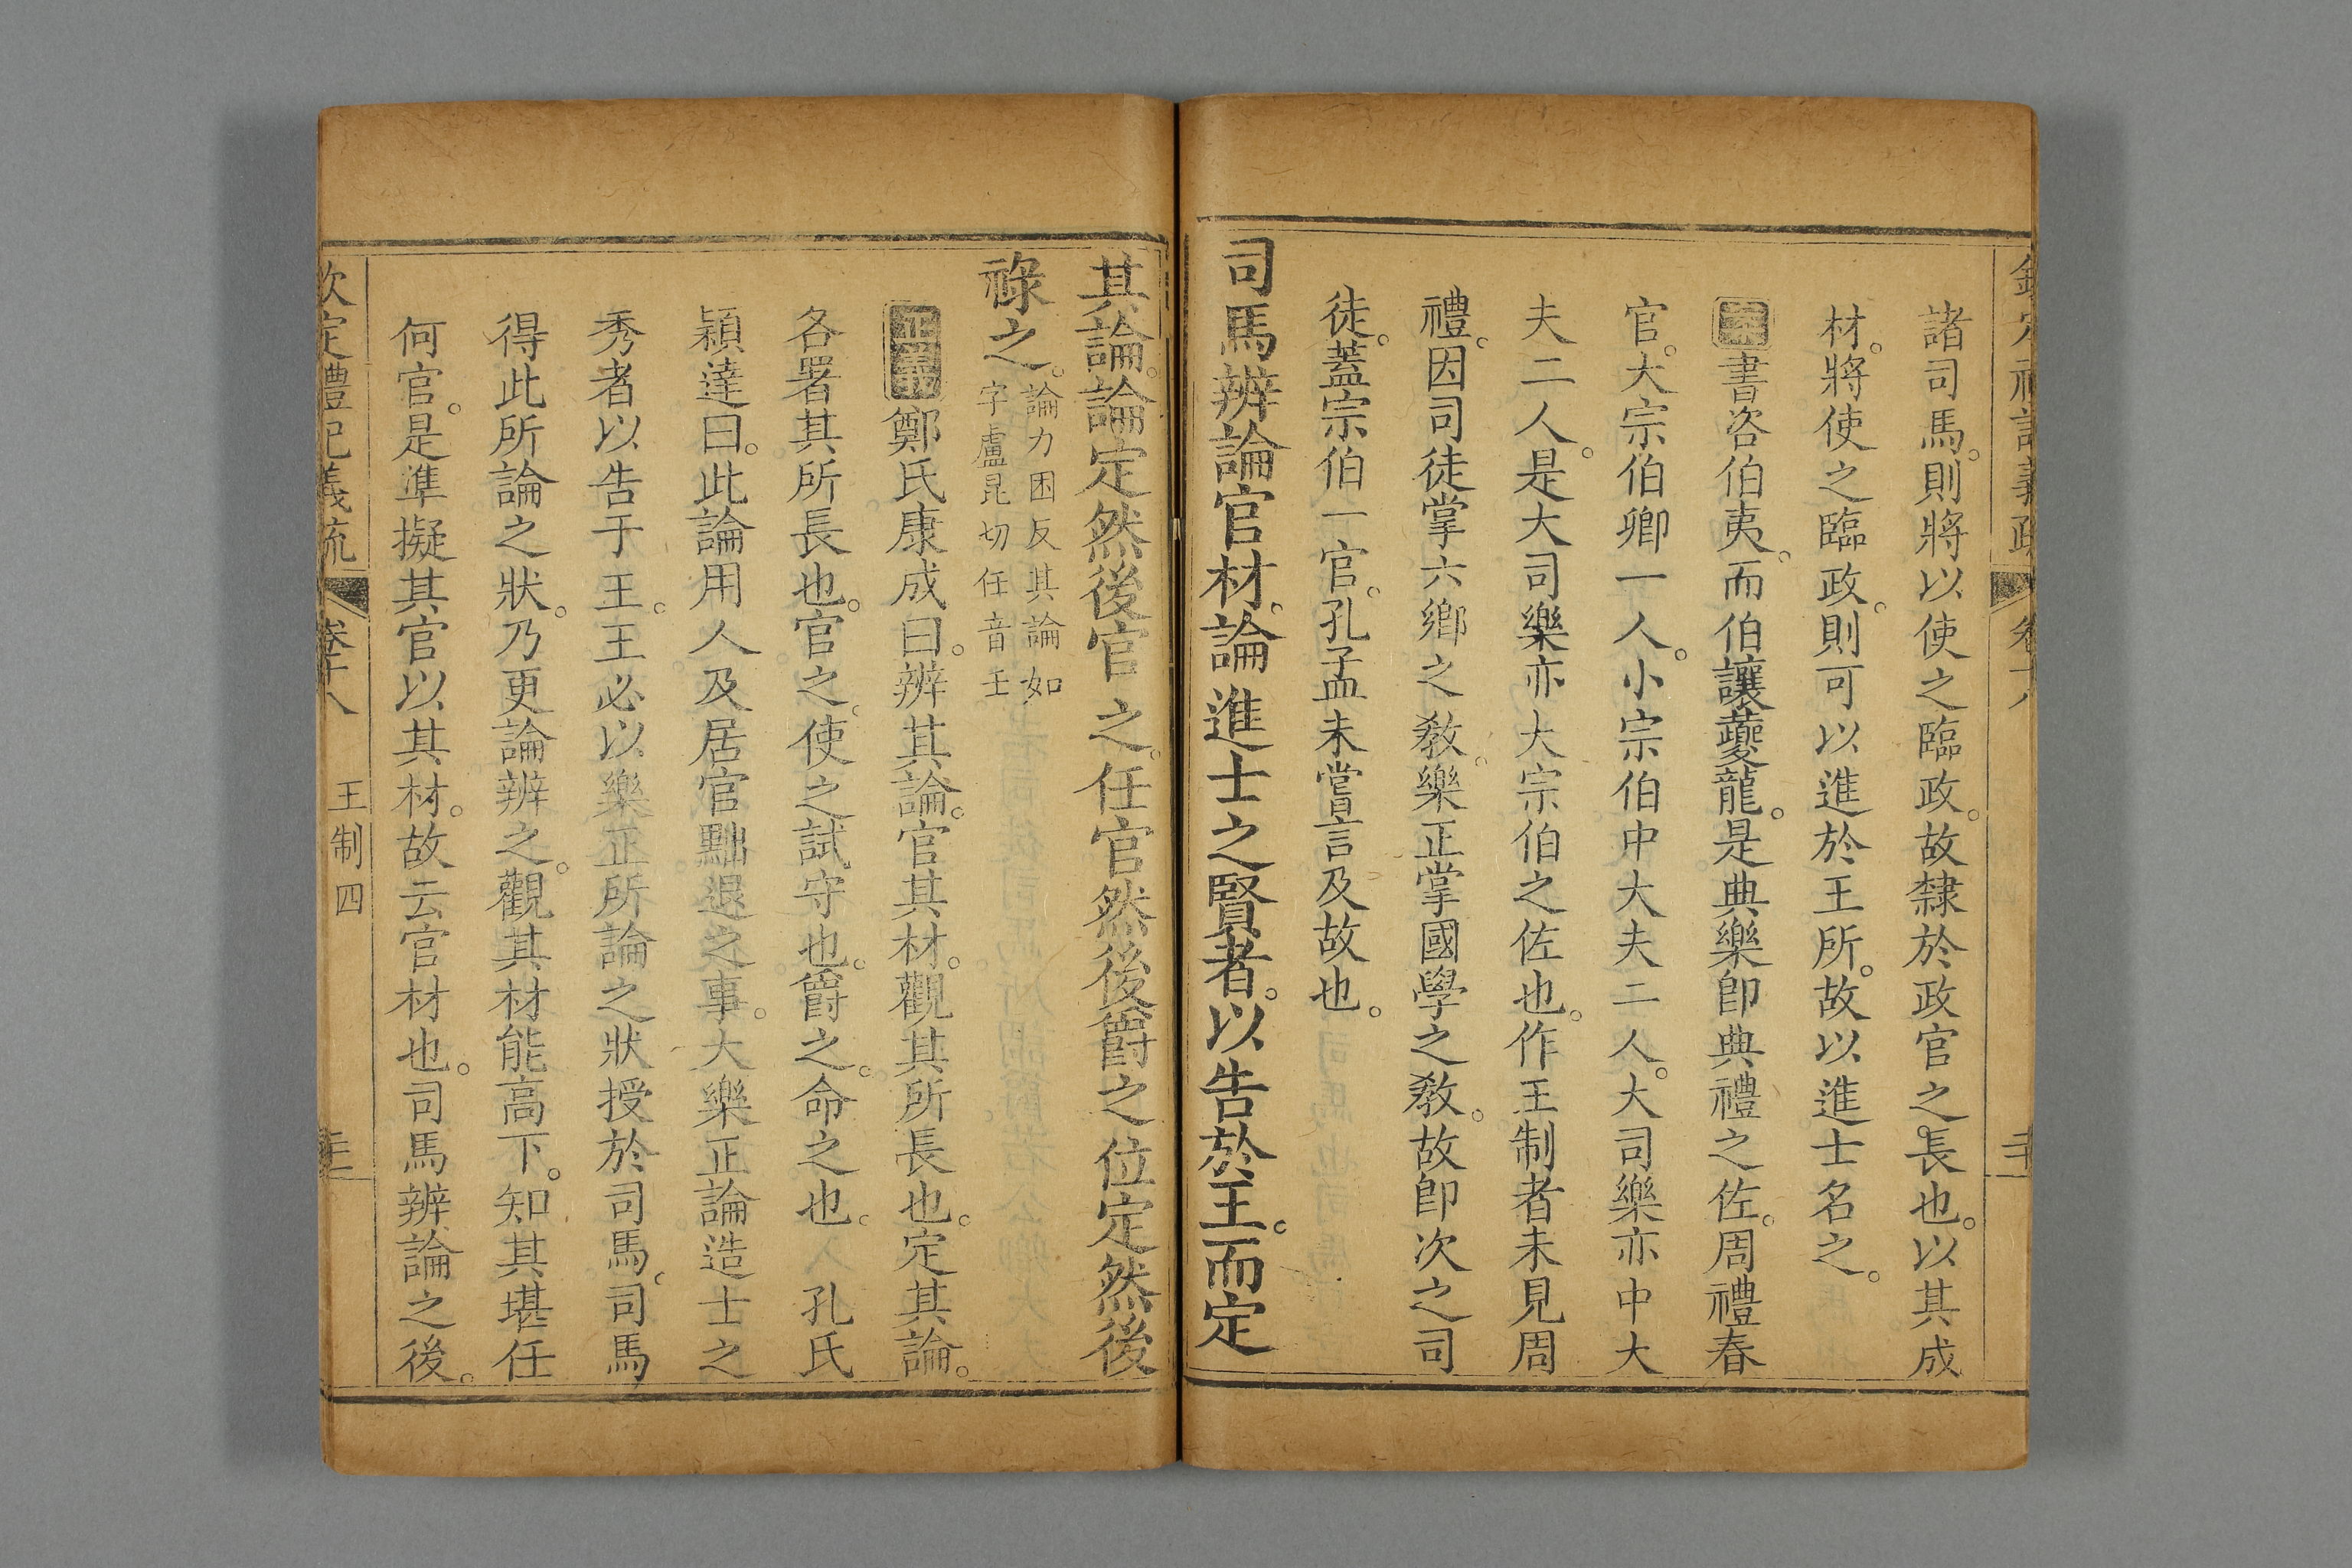 諸司馬。則將以使之臨政。故隸於政官之長也。以其成
材。將使之臨政。則可以進於王所。故以進士名之。
案書咨伯夷。而伯讓夔龍。是典樂卽典禮之佐。周禮春
官。大宗伯卿一人。小宗伯中大夫二人。大司樂亦中大
夫二人。是大司樂亦大宗伯之佐也。作王制者未見周
禮。因司徒掌六鄉之敎。樂正掌國學之敎。故卽次之司
徒。蓋宗伯一官。孔孟未嘗言及故也。
司馬辨論官材。論進士之賢者。以告於王。而定
其論。論定然後官之。任官然後爵之位定然後
祿之。論力困反其論如
字盧昆切任音壬
正義鄭氏康成曰。辨其論。官其材。觀其所長也。定其論。
各署其所長也。官之。使之試守也。爵之。命之也。 孔氏
穎達曰。此論用人及居官黜退之事。大樂正論造士之
秀者以告于王。王必以樂正所論之狀授於司馬。司馬
得此所論之狀。乃更論辨之。觀其材能高下。知其堪任
何官。是準擬其官以其材。故云官材也。司馬辨論之後。
欽定禮記義疏 卷十八 王制四